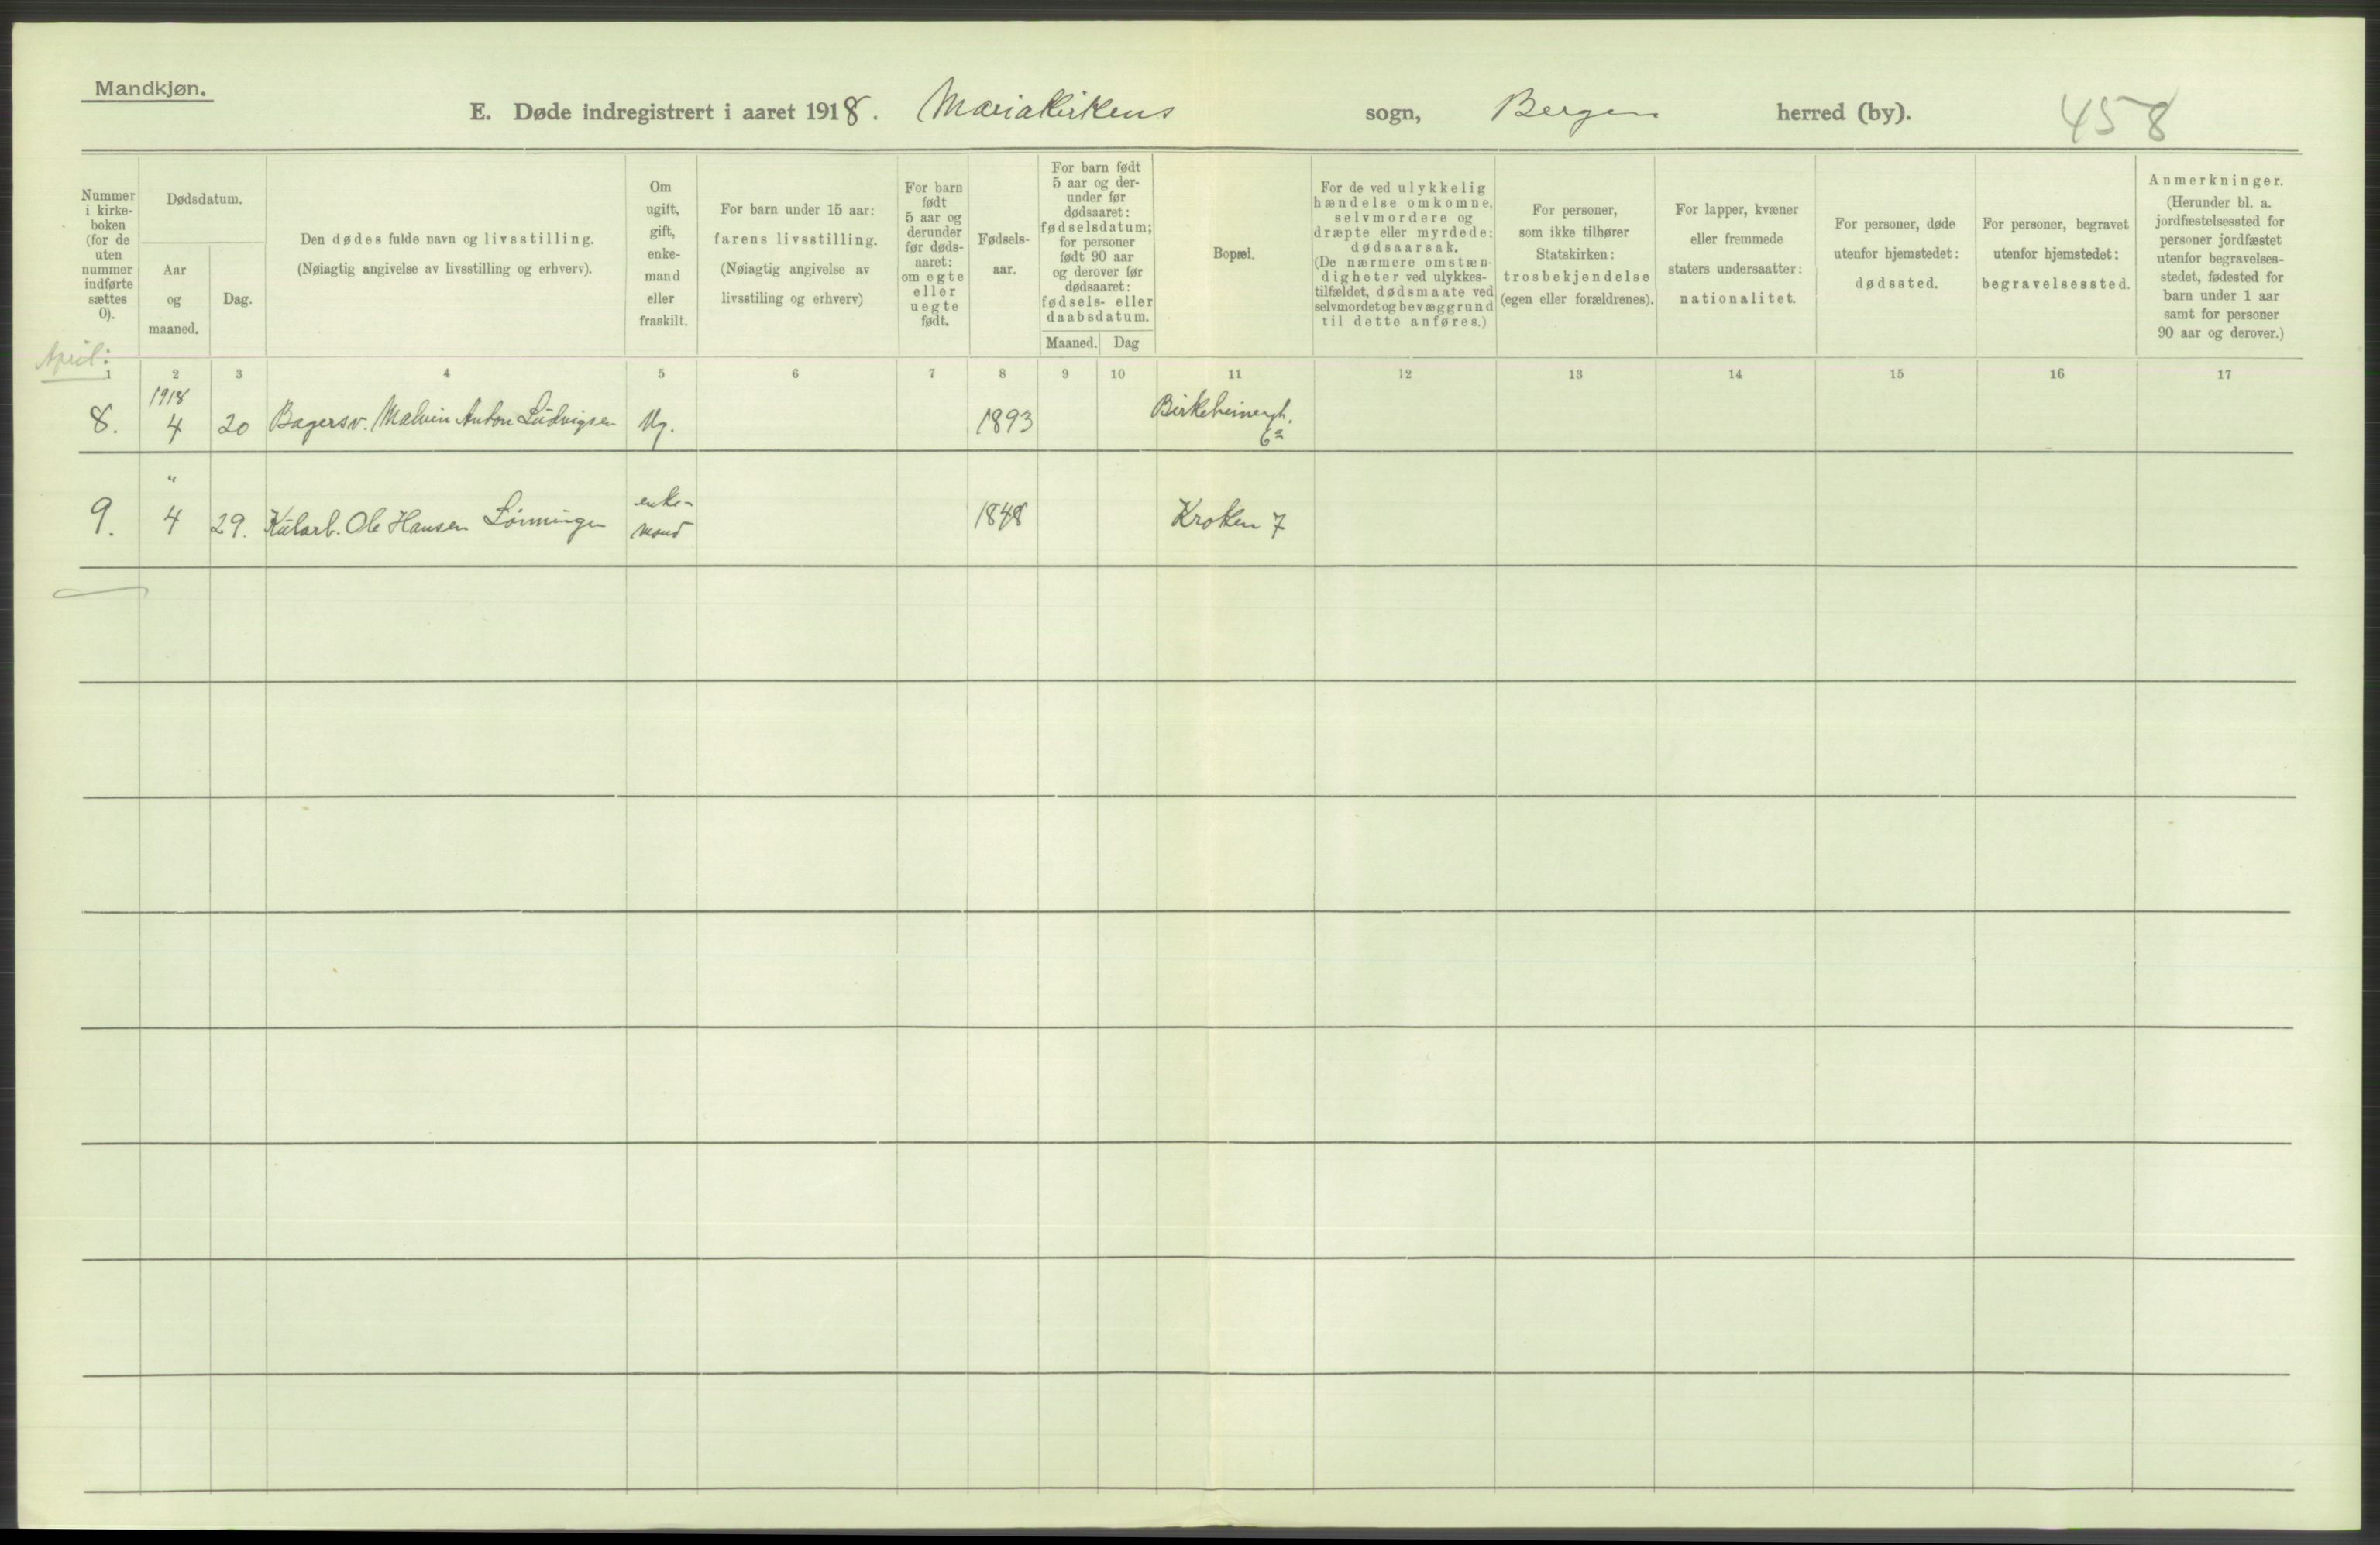 Mandkjøn.
E. Døde indregistrert i aaret 1918. Mariakirkens sogn, Bergen herred (by). 458
Nummer
i kirke-
boken
(for de
uten
nummer
indførte
sættes
0).
Dødsdatum.
Aar
og
maaned.
Dag.
Den dødes fulde navn og livsstilling.
(Nøiagtig angivelse av livsstilling og erhverv).
Om
ugift,
gift,
enke-
mand
eller
fraskilt.
For barn under 15 aar:
farens livsstilling.
(Nøiagtig angivelse av
livsstiling og erhverv)
For barn
født
5 aar og
derunder
før døds-
aaret:
om egte
eller
uegte
født.
Fødsels-
aar.
For barn født
5 aar og der-
under før
dødsaaret:
fødselsdatum;
for personer
født 90 aar
og derover før
dødsaaret:
fødsels- eller
daabsdatum.
Maaned. Dag
Bopæl.
For de ved ulykkelig
hændelse omkomne,
selvmordere og
dræpte eller myrdede:
dødsaarsak.
(De nærmere omstæn-
digheter ved ulykkes-
tilfældet, dødsmaate ved
selvmordet og bevæggrund
til dette anføres.)
For personer,
som ikke tilhører
Statskirken:
trosbekjendelse
(egen eller forældrenes).
For lapper, kvæner
eller fremmede
staters undersaatter:
nationalitet.
For personer, døde
utenfor hjemstedet:
dødssted.
For personer, begravet
utenfor hjemstedet:
begravelsessted.
Anmerkninger.
(Herunder bl. a.
jordfæstelsessted for
personer jordfæstet
utenfor begravelses-
stedet, fødested for
barn under 1 aar
samt for personer
90 aar og derover.)
April:
1 2 3 4 5 6 7 8 9 10 11 12 13 14 15 16 17
1918
8. 4 20 Bagersv. Malvin Anton Ludvigsen Ug. 1893 Birkebeinergt.
6a
" enke-
9. 4 29. Ole Hansen Lønningen mand 1848 Kroken 7